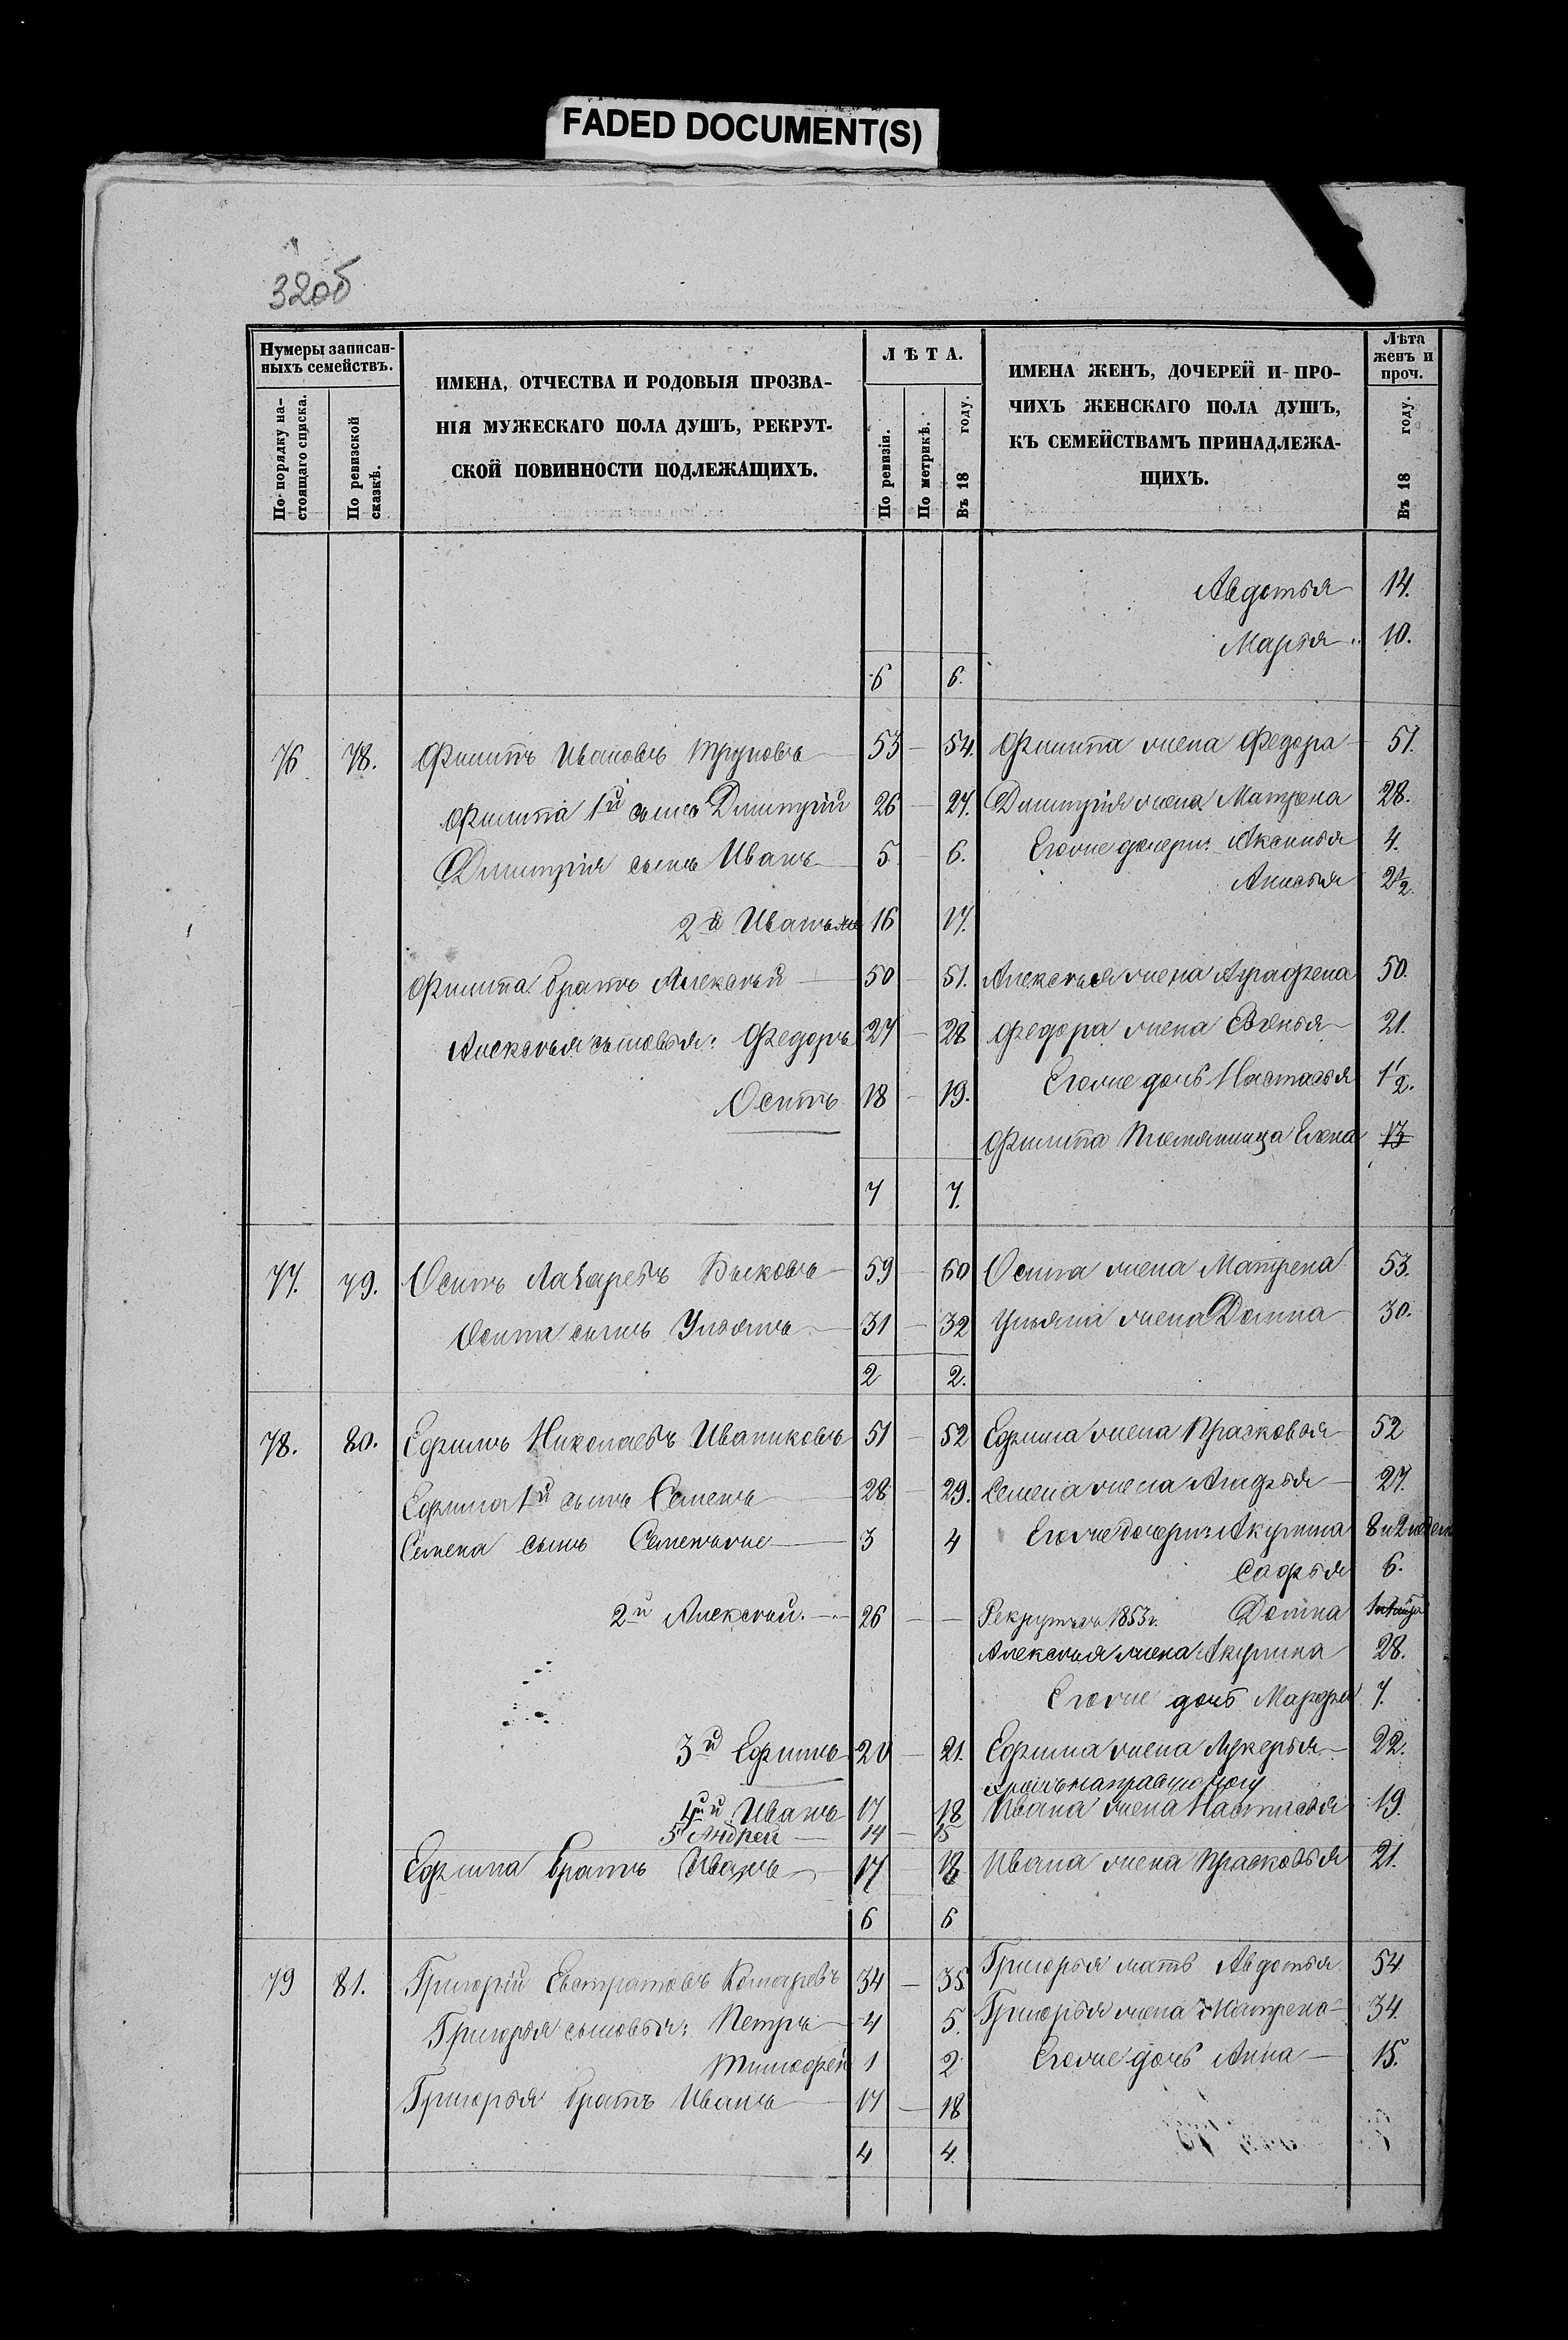 FADED DOCUMENT(S)
32об
Нумеры записан-
ныхъ семействъ.
По порядку на-
стоящаго списка.
По ревизской
сказкѣ.
ИМЕНА, ОТЧЕСТВА И РОДОВЫЯ ПРОЗВА-
НІЯ МУЖЕСКАГО ПОЛА ДУШЪ, РЕКРУТ-
СКОЙ ПОВИННОСТИ ПОДЛЕЖАЩИХЪ.
ЛѢТА.
По ревизіи.
По метрикѣ.
Въ 18 году.
ИМЕНА ЖЕНЪ, ДОЧЕРЕЙ И ПРО-
ЧИХЪ ЖЕНСКАГО ПОЛА ДУШЪ,
КЪ СЕМЕЙСТВАМЪ ПРИНАДЛЕЖА-
ЩИХЪ.
Лѣта
женъ и
проч.
Въ 18 году.
Авдотья 14.
Марья 10.
6 6.
76 78. Филипъ Ивановъ Труновъ 53 – 54. Филипа жена Федора 51.
Филипа 1й сынъ Дмитрій 26 – 27. Димитрія жена Матрена 28.
Димитрія сынъ Иванъ 5 – 6. Егоже дочери: Аксинья 4.
Анисья 2½.
2й Иванъ же 16 17.
Филипа братъ Алексѣй 50 – 51. Алексѣя жена Аграфена 50.
Алексѣя сыновья: Федоръ 27 – 28 Федора жена 21.
Осипъ 18 – 19. Егоже дочь Настасья 1½.
Филипа племянница Елена 13
7 7.
77. 79. Осипъ Лазаревъ Быковъ 59 – 60 Осипа жена Матрена 53.
Осипа сынъ Ульянъ 31 – 32 Ульяна жена Домна 30.
2 2.
78. 80. Ефимъ Николаевъ Иваниковъ 51 – 52 Ефима жена Прасковья 52
Ефима 1й сынъ Семенъ 28 – 29. Семена жена Агафья 27.
Семена сынъ Семенъ же 3 4 Егоже дочери: Акулина 8 и 2 недели
Софья 6.
2й Алексѣй 26 – – Рекрутъ въ 1853 г. Домна
Алексѣя жена Акулина 28.
Егоже дочь Марфа 7.
3й Ефимъ 20 – 21. Ефима жена Лукерья 22.
хромъ на правую ногу
4й Иванъ 17 18 Ивана жена Настасья 19.
5й Андрей 14 – 15
Ефима братъ Иванъ 17 18 Ивана жена Прасковья 21.
6 6
79 81. Григорій Евстратовъ Комаревъ 34 – 35 Григорья мать Авдотья 54
Григорья сыновья: Петръ 4 5. Григорья жена Матрена 34.
Тимофей 1 2 Егоже дочь Анна 15.
Григорья братъ Иванъ 17 – 18
4 4.